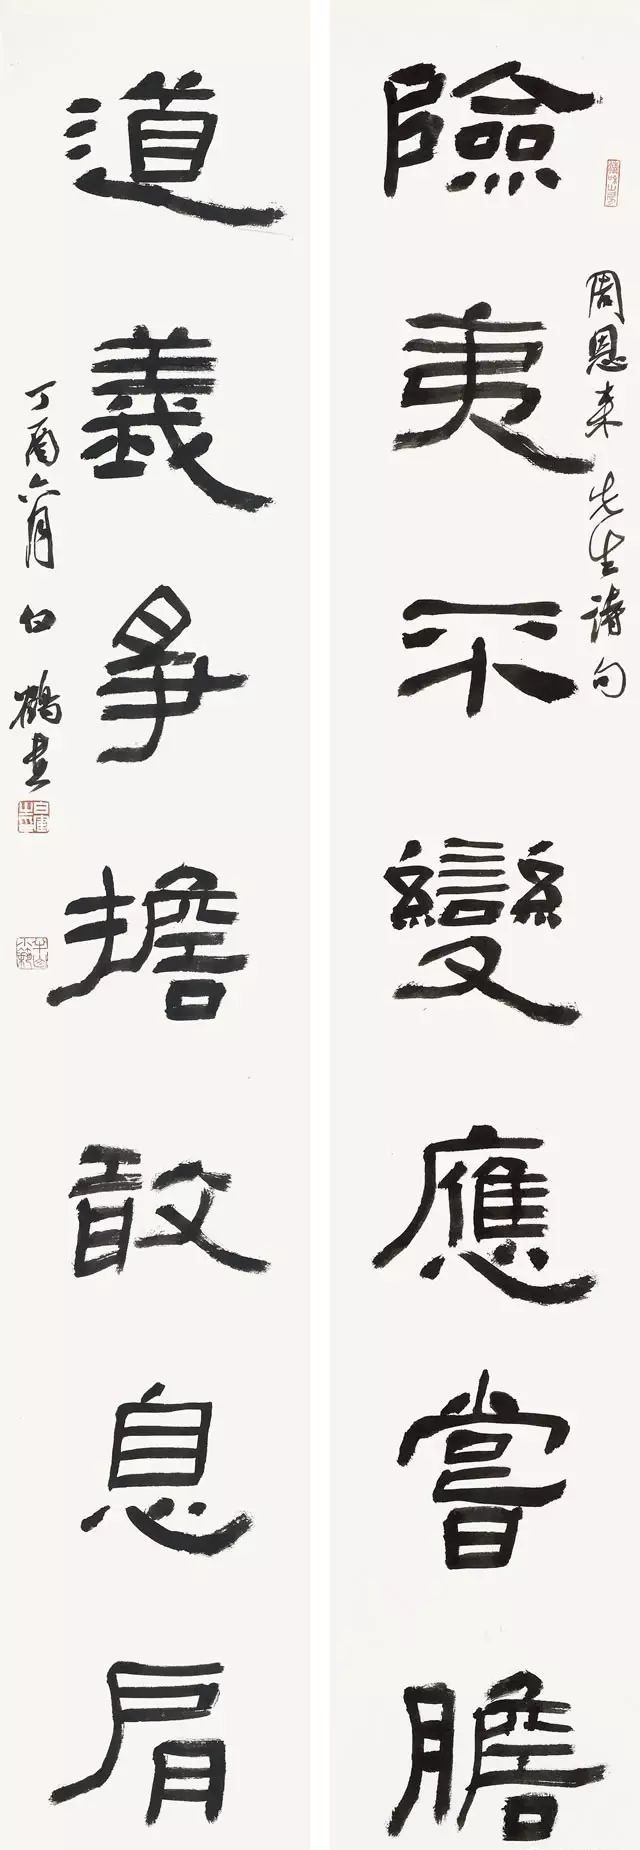 險夷不變應嘗膽
周恩来先生詩句
道義爭擔敢息肩
丁酉六月白鶴書